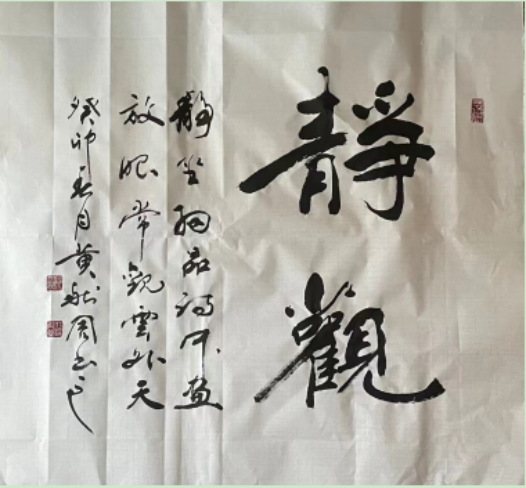 靜觀
靜坐細品詩中畫
放眼常觀雲外天
癸卯春月黄周书